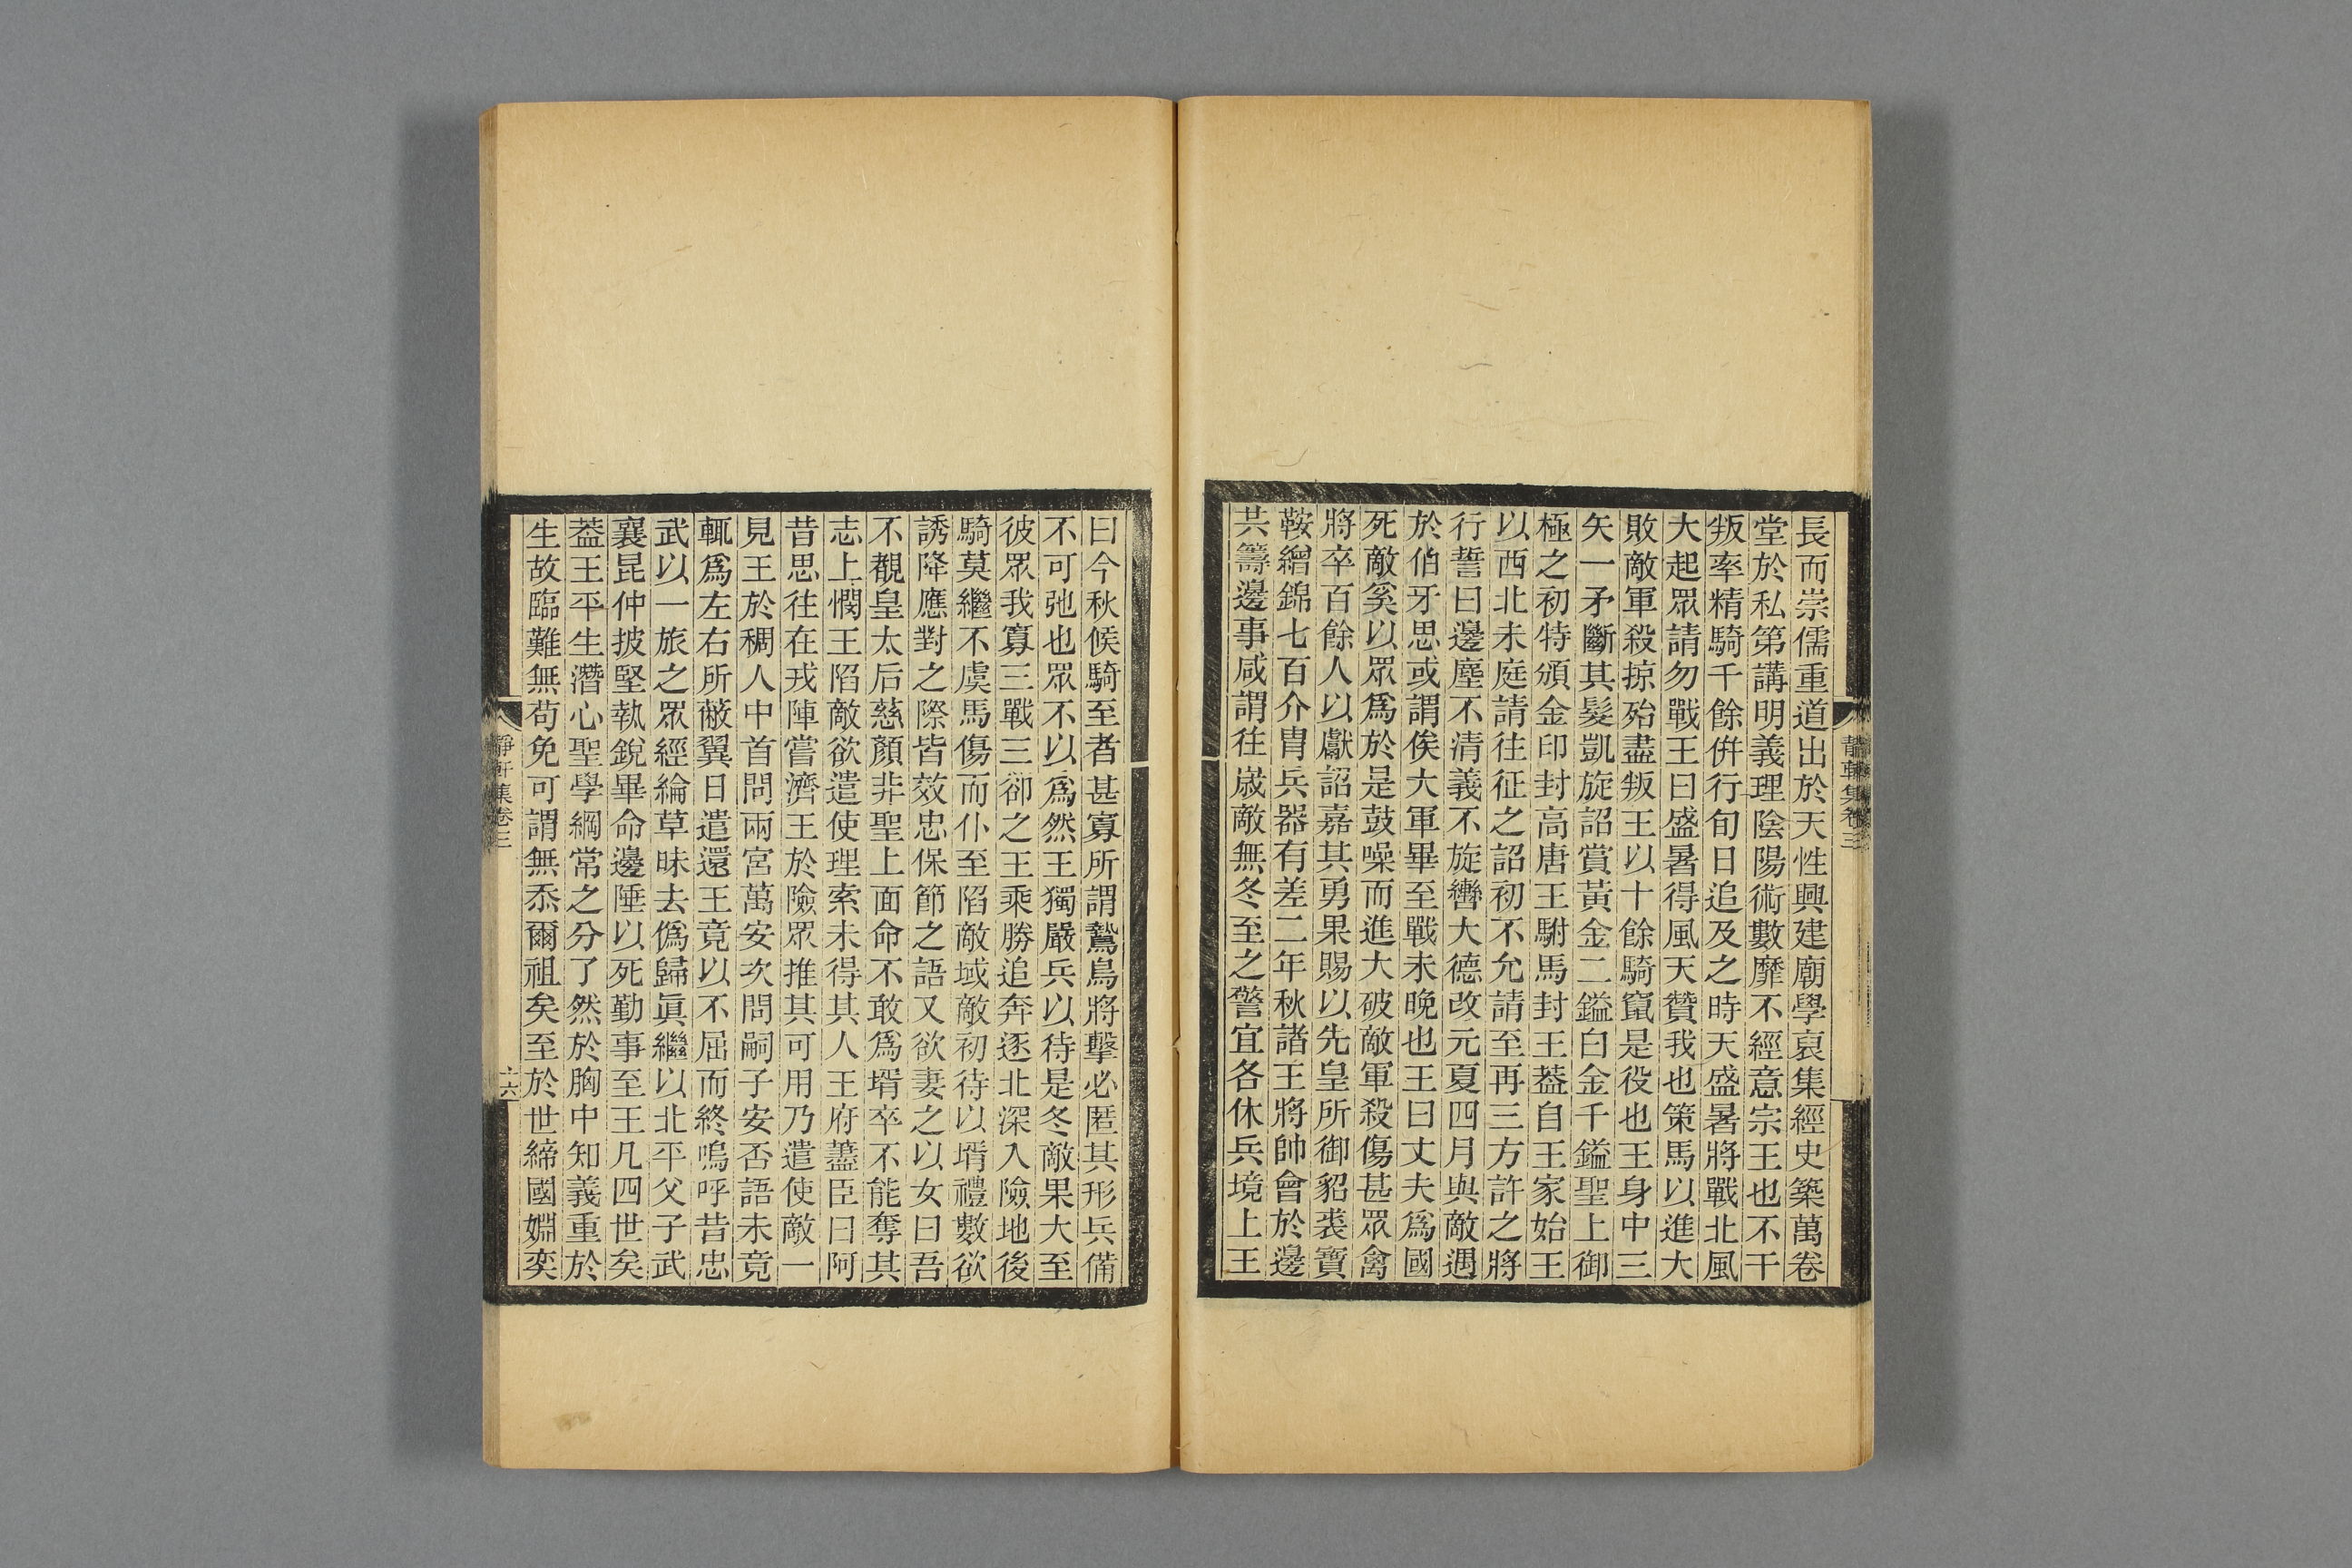 長而崇儒重道出於天性興建廟學裒集經史築萬卷
堂於私第講明義理陰陽術數靡不經意宗王也不干
叛率精騎千餘倂行旬日追及之時天盛暑將戰北風
大起眾請勿戰王曰盛暑得風天贊我也策馬以進大
敗敵軍殺掠殆盡叛王以十餘騎竄是役也王身中三
矢一矛斷其髮凱旋詔賞黃金二鎰白金千鎰聖上御
極之初特頒金印封高唐王駙馬封王葢自王家始王
以西北未庭請往征之詔初不允請至再三方許之將
行誓曰邊塵不清義不旋轡大德改元夏四月與敵遇
於伯牙思或謂俟大軍畢至戰未晚也王曰丈夫爲國
死敵奚以眾爲於是鼓噪而進大破敵軍殺傷甚眾禽
將卒百餘人以獻詔嘉其勇果賜以先皇所御貂裘寶
鞍繒錦七百介胄兵器有差二年秋諸王將帥會於邊
共籌邊事咸謂往歲敵無冬至之警宜各休兵境上王
曰今秋候騎至者甚寡所謂鷙鳥將擊必匿其形兵備
不可弛也眾不以爲然王獨嚴兵以待是冬敵果大至
彼眾我寡三戰三卻之王乘勝追奔逐北深入險地後
騎莫繼不虞馬傷而仆至陷敵域敵初待以壻禮數欲
誘降應對之際皆效忠保節之語又欲妻之以女曰吾
不覩皇太后慈顏非聖上面命不敢爲壻卒不能奪其
志上憫王陷敵欲遣使理索未得其人王府藎臣曰阿
昔思往在戎陣嘗濟王於險眾推其可用乃遣使敵一
見王於稠人中首問兩宮萬安次問嗣子安否語未竟
輒爲左右所蔽翼日遣還王竟以不屈而終嗚呼昔忠
武以一旅之眾經綸草昧去僞歸眞繼以北平父子武
襄昆仲披堅執銳畢命邊陲以死勤事至王凡四世矣
葢王平生潛心聖學綱常之分了然於胸中知義重於
生故臨難無苟免可謂無忝爾祖矣至於世締國婣奕
靜軒集卷三
十六